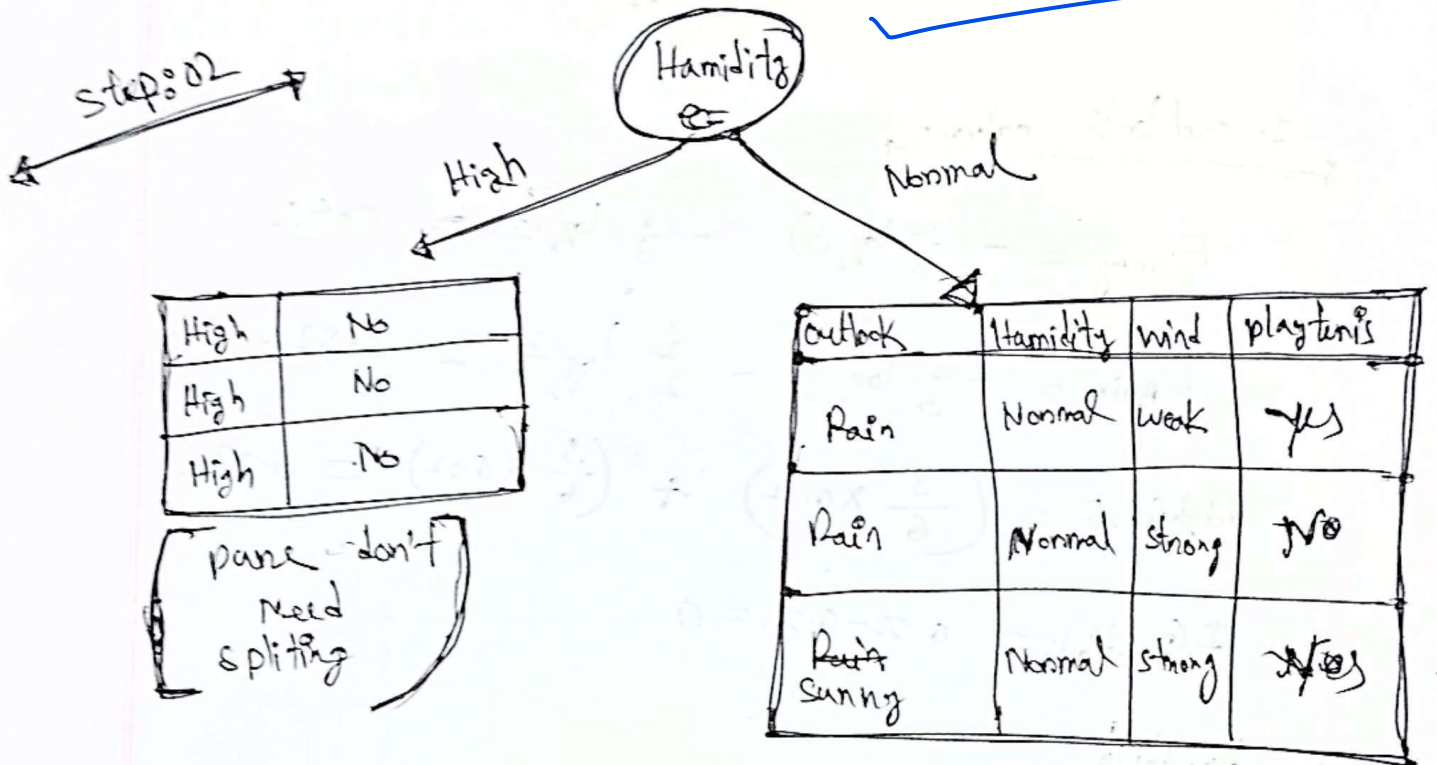 Step:02
Hamidity
High
Normal
High No
High No
High No
pure don't
Need
spliting
outlook Hamidity wind playtenis
Rain Normal weak yes
Rain Normal strong No
Rain Normal strong
sunny